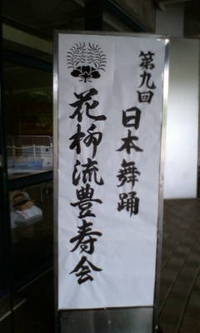 第九回
日本舞踊
花柳流豊寿会